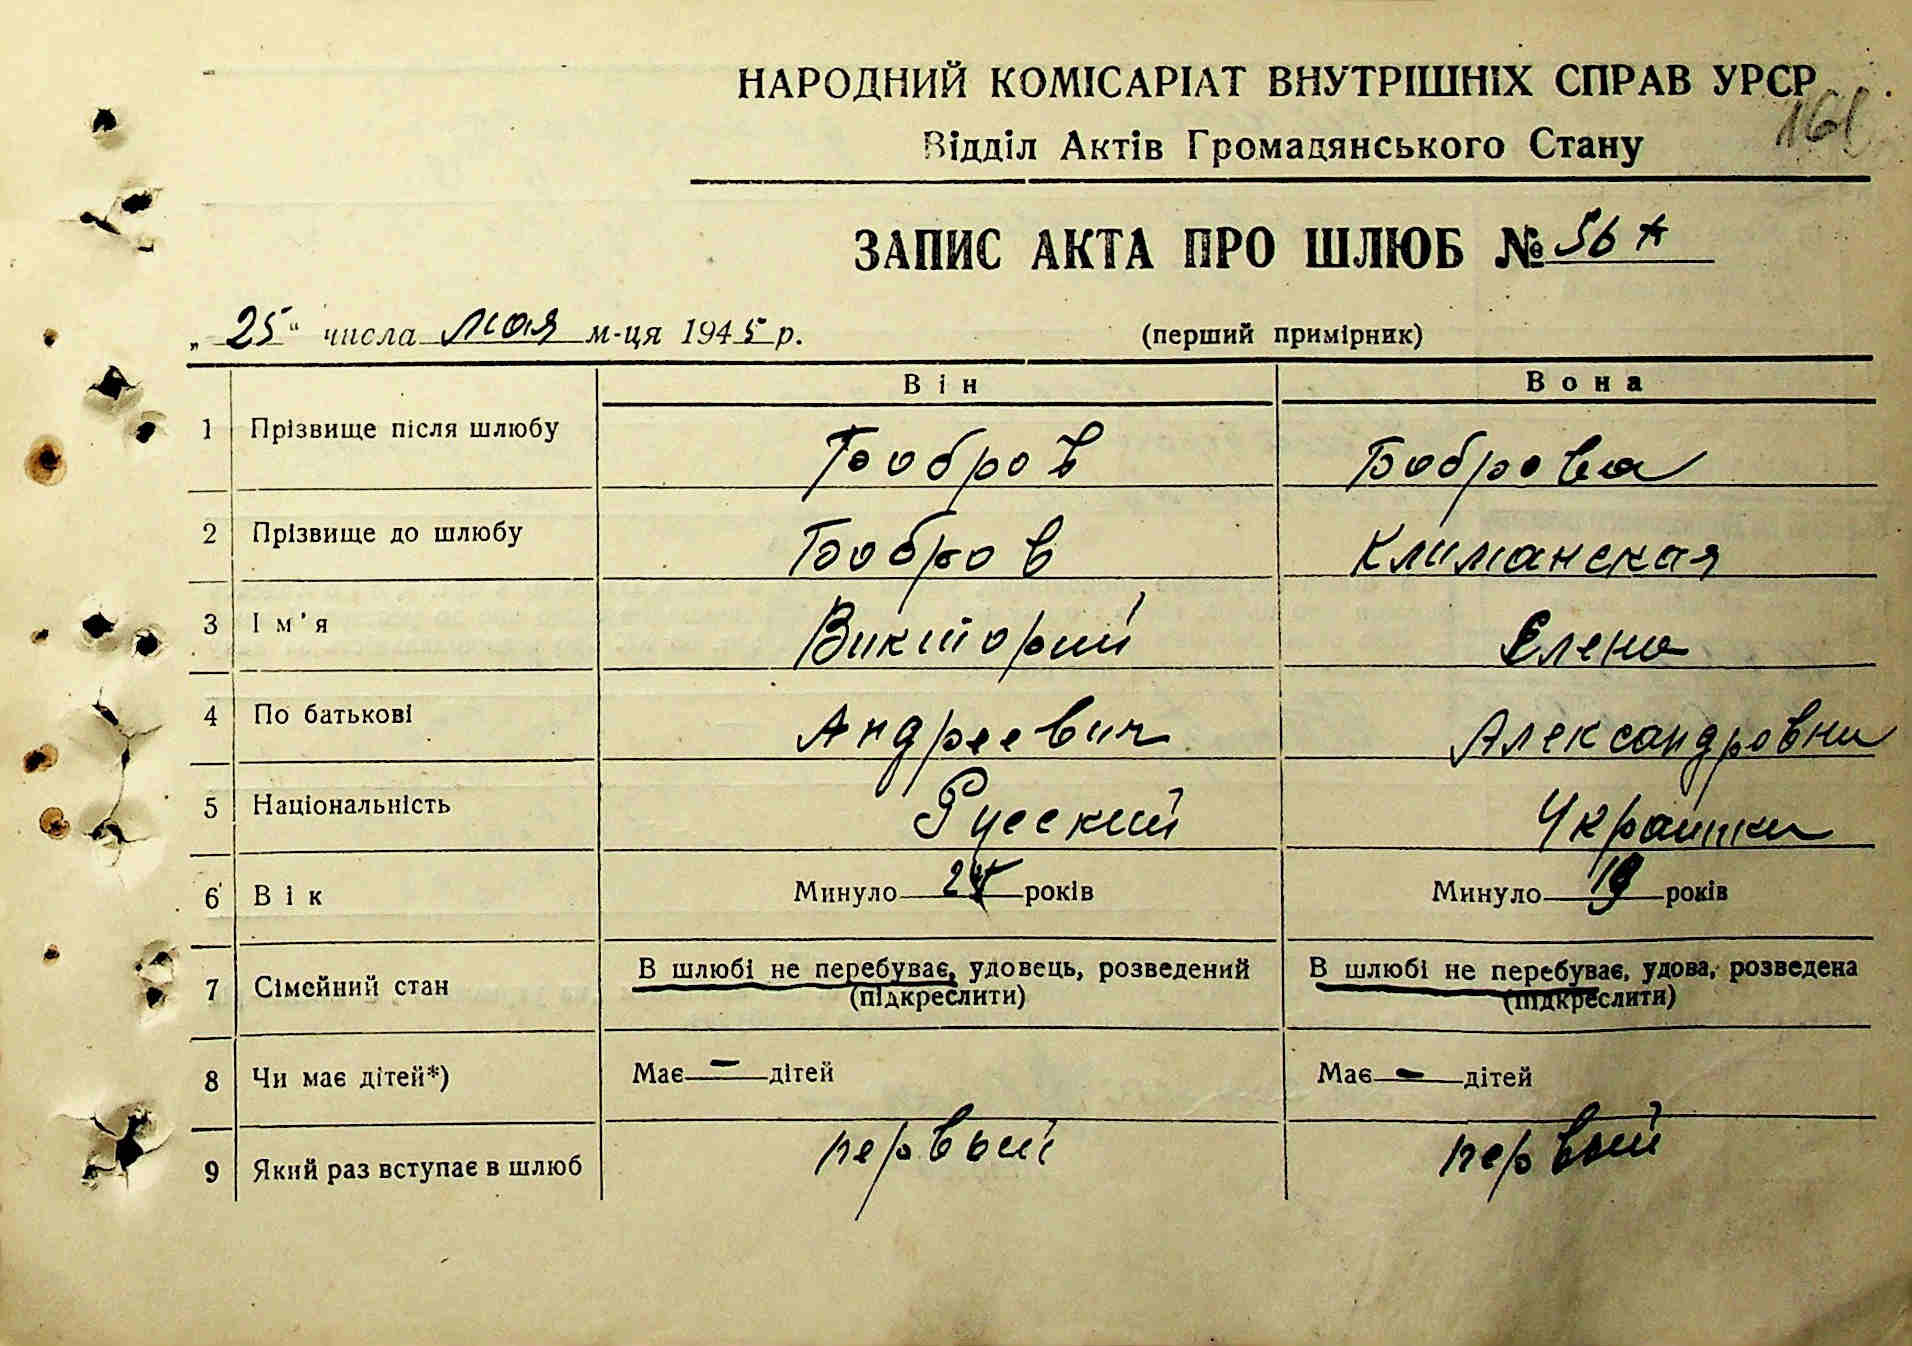 НАРОДНИЙ КОМІСАРІАТ ВНУТРІШНІХ СПРАВ УРСР
161
Відділ Актів Громадянського Стану
ЗАПИС АКТА ПРО ШЛЮБ № 56 А
„25“ числа мая м-ця 1945 р. (перший примірник)
Він Вона
1 Прізвище після шлюбу Бобров Боброва
2 Прізвище до шлюбу Бобров Климанская
3 Ім'я Викторий Елена
4 По батькові Андреевич Александровна
5 Національність Русский Украинка
6 Вік Минуло років Минуло 19 років
7 Сімейний стан В шлюбі не перебуває, удовець, розведений В шлюбі не перебуває, удова, розведена
(підкреслити) (підкреслити)
8 Чи має дітей*) Має — дітей Має — дітей
9 Який раз вступає в шлюб первый первый